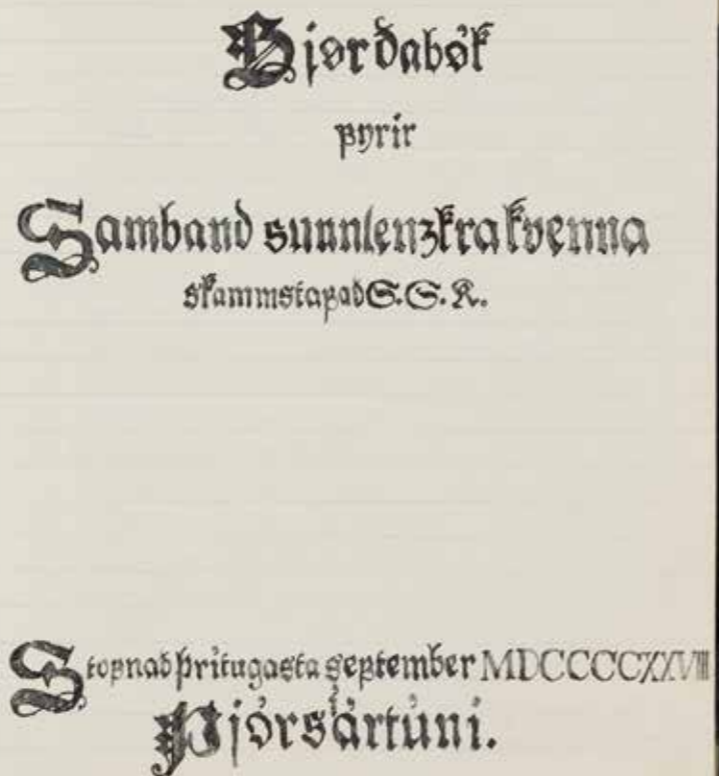 Gjørðabók
fyrir
Samband sunnlenzkra kvenna
skammstafað S.S.K.
Stofnað þrítugasta september MDCCCCXXVIII
Þjórsártúni.